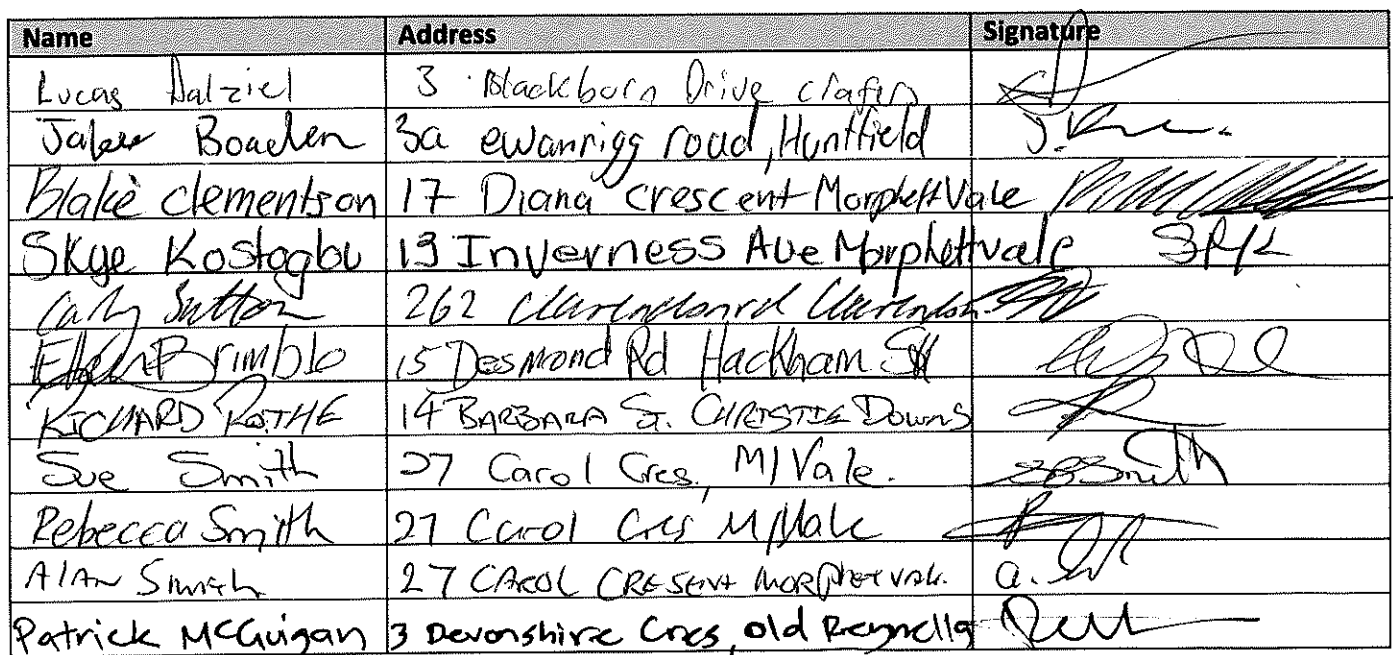 Name Address Signature
Lucas Dalziel 3 Blackburn Drive
Boaden 3a ewanrigg road, Huntfield
Blake clementson 17 Diana crescent Morphett Vale
Skye 13 Inverness Ave Morphettvale
Sutton 262 Clarendon rd Clarendon
Brimble 15 Desmond Rd Hackham
RICHARD ROTHE 14 BARBARA ST. CHRISTIE DOWNS
Sue Smith 27 Carol Cres, M/Vale. Smith
Rebecca Smith 27 Carol Cres M/Vale
Alan Smith 27 CAROL CRESENT MORPHETVALE. a.
Patrick McGuigan 3 Devonshire Cres, old Reynella